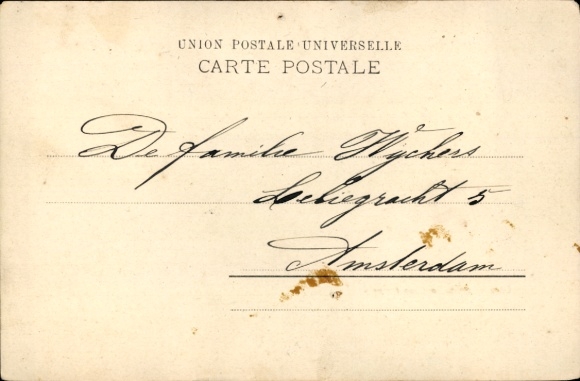 UNION POSTALE UNIVERSELLE
CARTE POSTALE
De familie Wychers
Leliegracht 5
Amsterdam